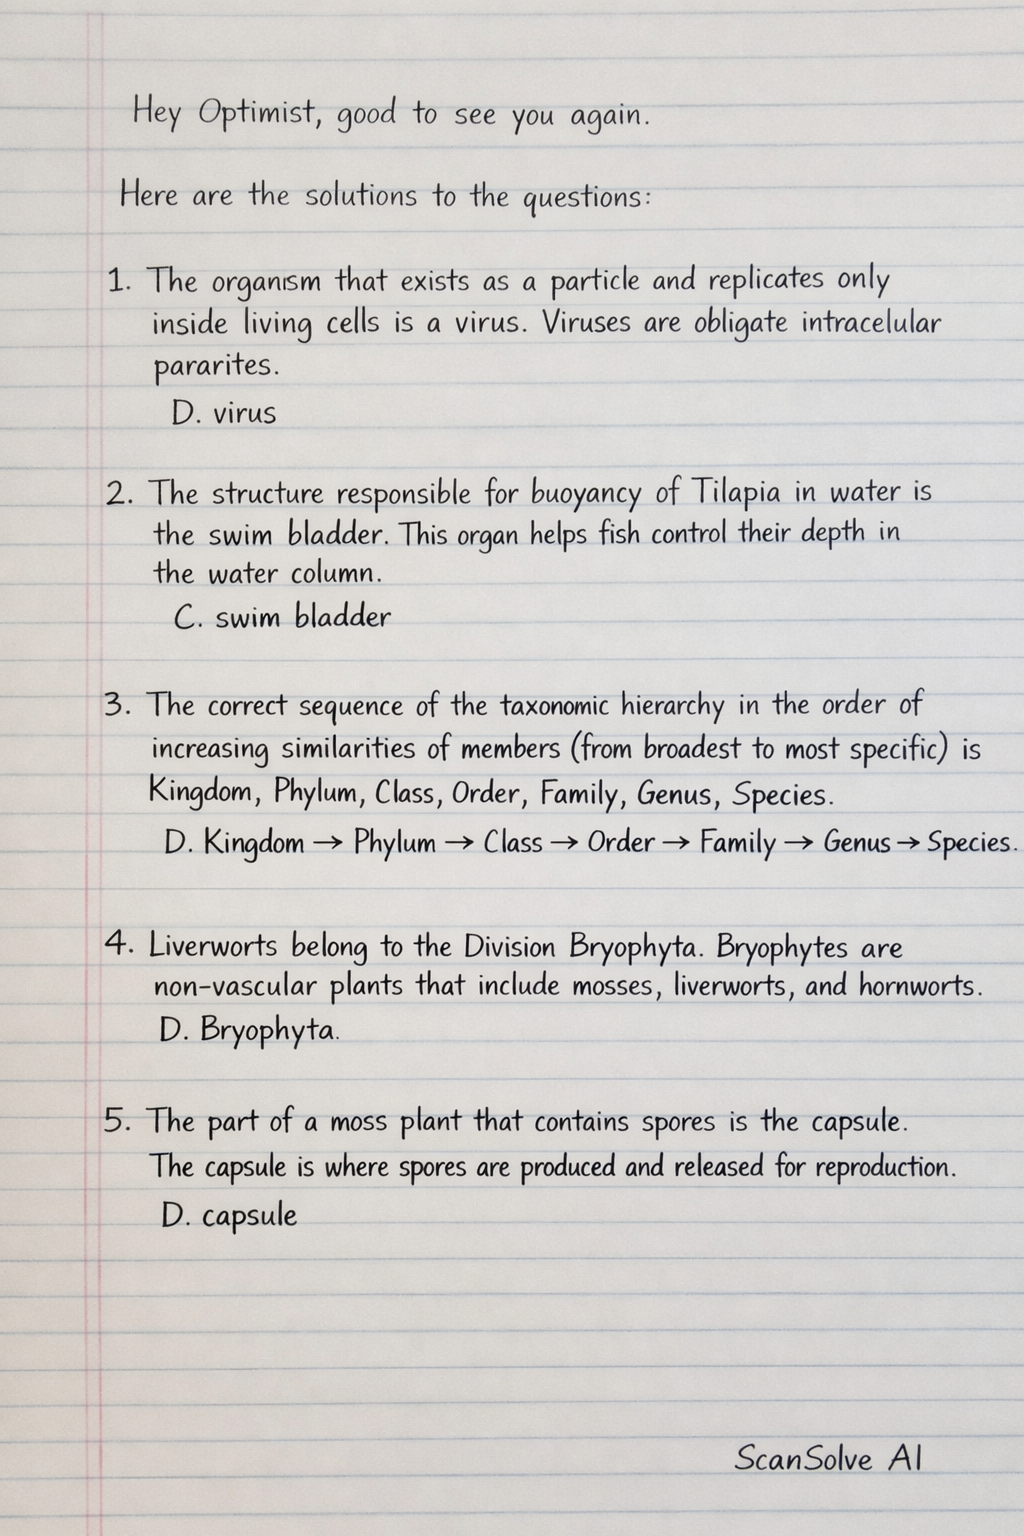 Hey Optimist, good to see you again.
Here are the solutions to the questions:
1. The organism that exists as a particle and replicates only
inside living cells is a virus. Viruses are obligate intracelular
pararites.
D. virus
2. The structure responsible for buoyancy of Tilapia in water is
the swim bladder. This organ helps fish control their depth in
the water column.
C. swim bladder
3. The correct sequence of the taxonomic hierarchy in the order of
increasing similarities of members (from broadest to most specific) is
Kingdom, Phylum, Class, Order, Family, Genus, Species.
D. Kingdom → Phylum → Class → Order → Family → Genus → Species.
4. Liverworts belong to the Division Bryophyta. Bryophytes are
non-vascular plants that include mosses, liverworts, and hornworts.
D. Bryophyta.
5. The part of a moss plant that contains spores is the capsule.
The capsule is where spores are produced and released for reproduction.
D. capsule
ScanSolve AI